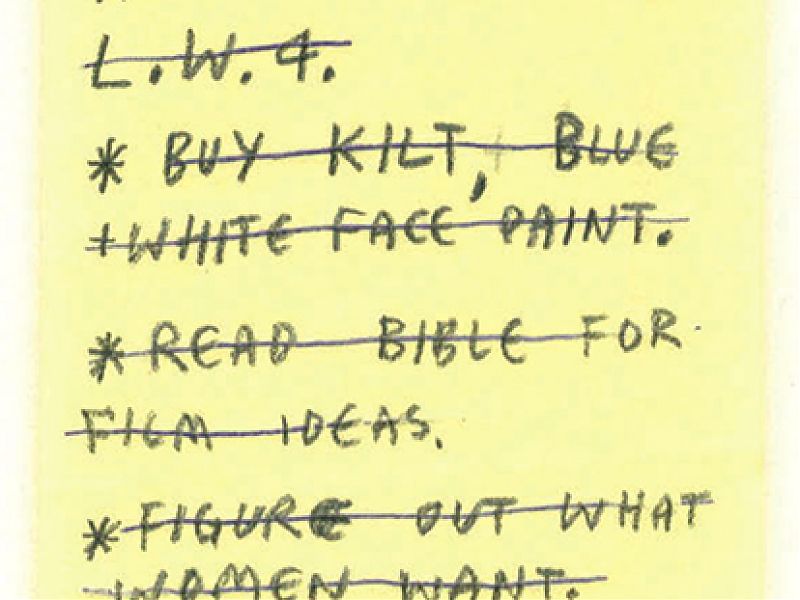 L.W.4.
* BUY KILT, BLUE
+WHITE FACE PAINT.
* READ BIBLE FOR
FILM IDEAS.
* FIGURE OUT WHAT
WOMEN WANT.